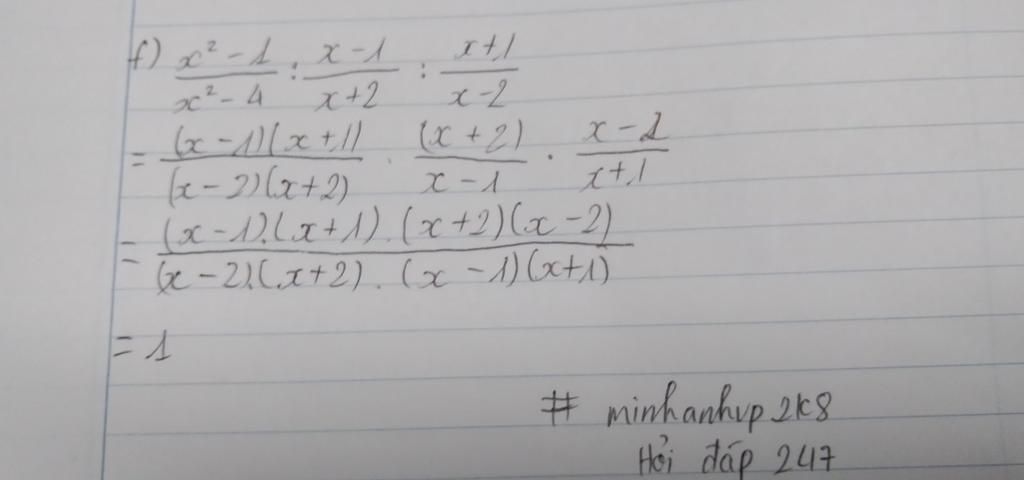 f) (x² - 1)/(x² - 4) : (x - 1)/(x + 2) : (x + 1)/(x - 2)
= (x - 1)(x + 1)/(x - 2)(x + 2) . (x + 2)/(x - 1) . (x - 2)/(x + 1)
= (x - 1).(x + 1).(x + 2)(x - 2)/(x - 2).(x + 2).(x - 1)(x + 1)
= 1
# minhanhvp2k8
Hỏi đáp 247